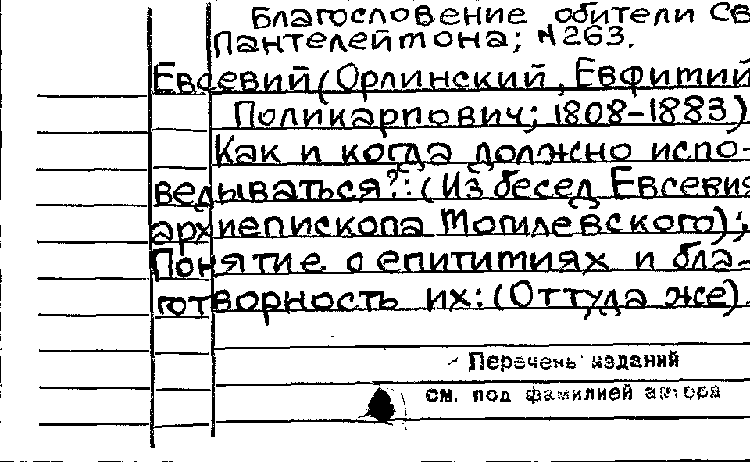 Благословение обители Св
Пантелеймона; № 263.
Евсевий (Орлинский, Евфимий
Поликарпович; 1808-1883)
Как и когда должно испо-
ведываться?: (Из бесед Евсевия
архиепископа Могилевского);
Понятие о епитимиях и бла-
готворность их: (Оттуда же)
Перечень изданий
см. под фамилией автора